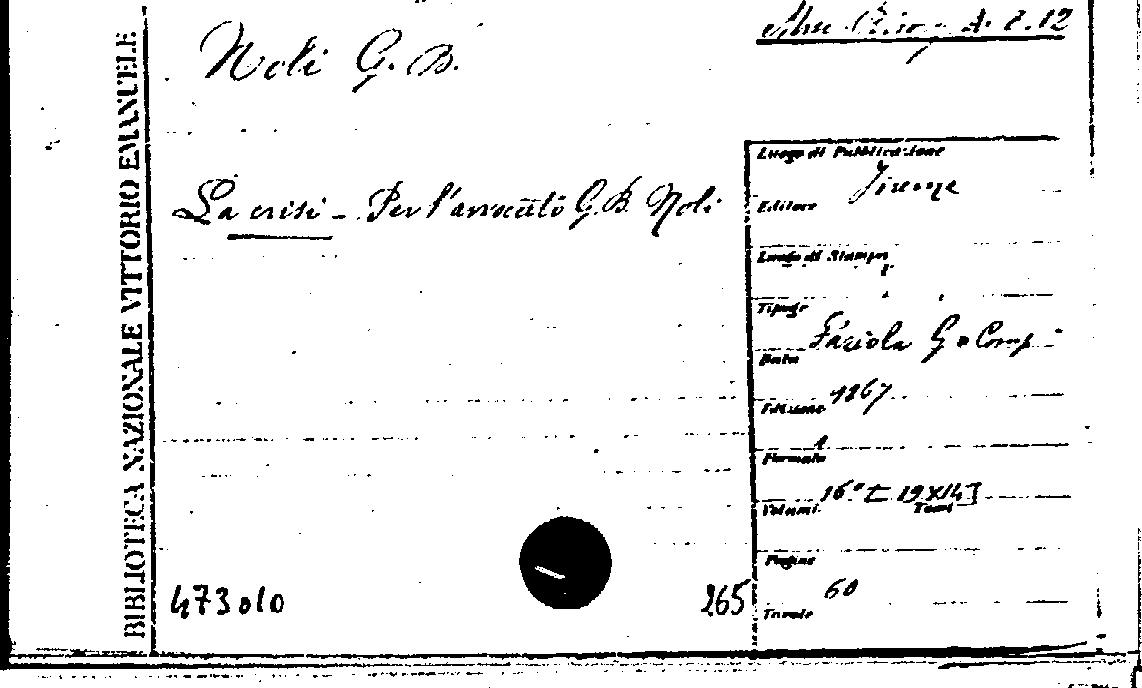 BIBLIOTECA NAZIONALE VITTORIO EMANUELE
A. 2.12
Noli G. B.
La crisi - Per l'avvocato G. B. Noli
Luogo di Pubblicazione
Firenze
Editore
Luogo di Stampa
Tipogr
Faziola G e Comp
Data
1867
Edizione
1
Formato
16° [19X14]
Volumi
Tomi
Pagine
60
Tavole
473010
265